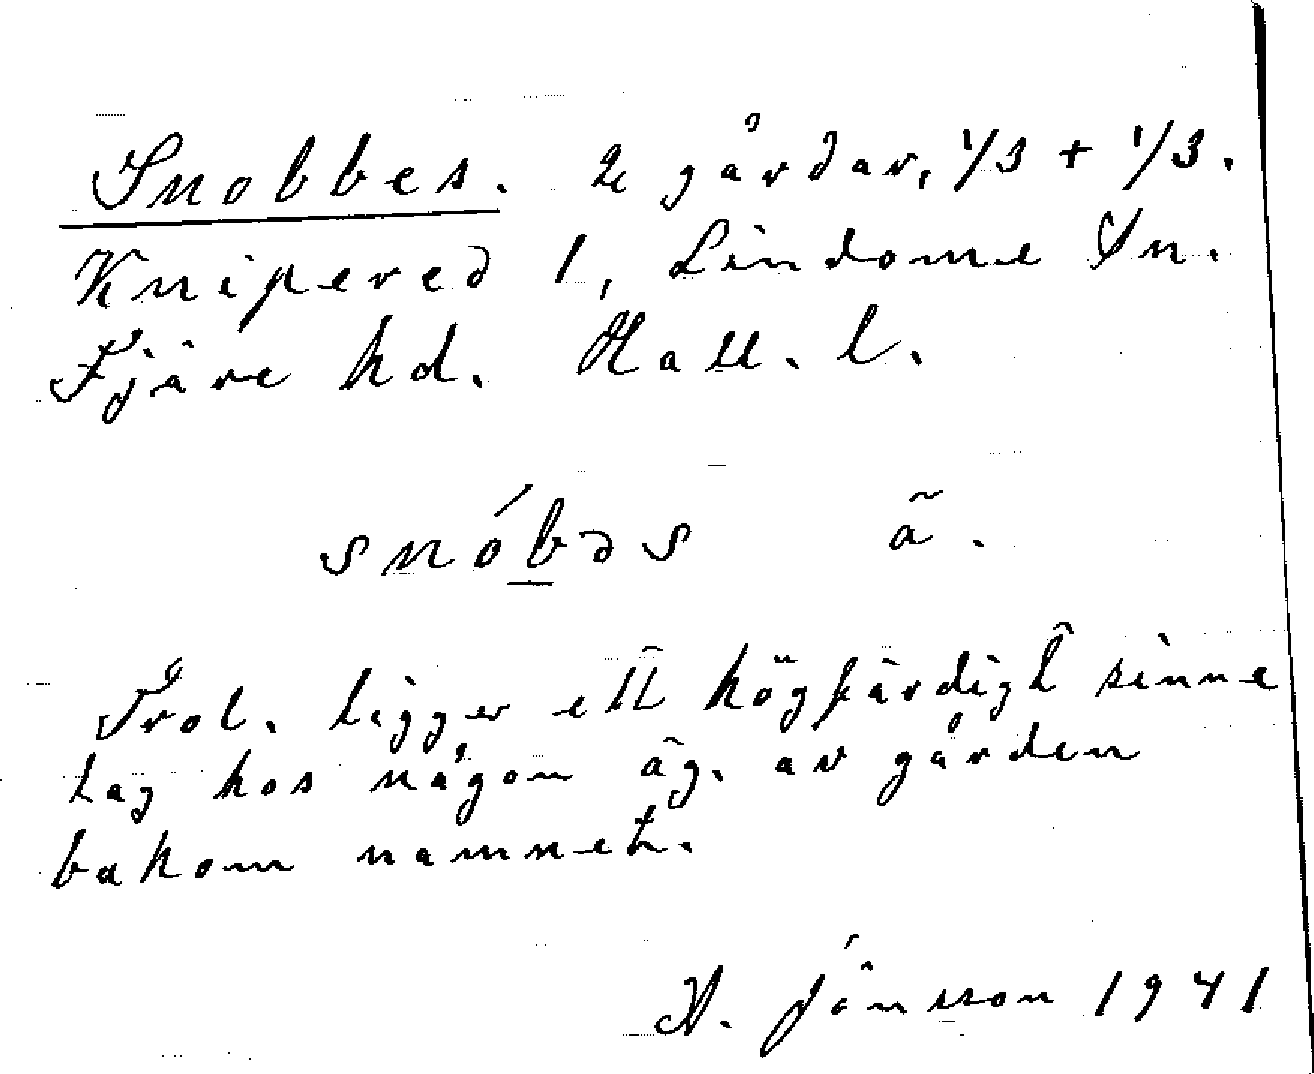 Snobbes. 2 gårdar, 1/3 + 1/3.
Knipered 1, Lindome sn.
Fjäre hd. Hall. l.
snóbəs ã.
Trol. ligger ett högfärdigt sinne
lag hos någon äg. av gården
bakom namnet.
A. Jónsson 1941